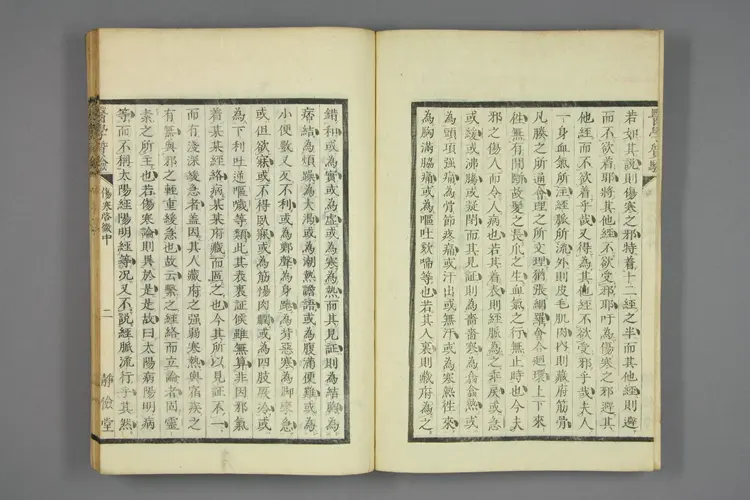 若如其說則傷寒之邪特着十二經之半而其他經則避
而不欲着耶將其他經不欲受邪耶吁為傷寒之邪避其
他經而不欲着乎哉又得為其他經不欲受邪乎哉夫人
一身血氣所注經脈所流外則皮毛肌肉內則藏府筋骨
凡腠之所通會理之所文理猶張綱羅會合廻環上下來
徃無有間斷故髮之長爪之生血氣之行無止時也今夫
邪之傷人而令人病也若其着表則經脈為之牽戾或急
或緩或沸騰或延閉而其見証則為嗇嗇寒為翕翕熱或
為頭項強痛為骨節疼痛或汗出或無汗或為寒熱徃來
為胸滿脇痛或為嘔吐欬喘等也若其人裏則藏府為之
錯和或為實或為虛或為寒為熱而其見証則為結胸為
痞結為煩躁為大渴或為潮熱譫語或為腹滿便難或為
小便數又反不利或為鄭聲為身踡為背惡寒為脚攣急
或但欲寐或不得臥寐或為筋惕肉瞤或為四肢厥冷或
為下利吐逆嘔噦等類此其表裏証候雖無算非因邪氣
着某某經絡病某某府藏而區之也今其所以見証不一
而有淺深緩急者盖因其人藏府之強弱寒熱與宿疾之
有無與邪之輕重緩急也故云繫之經絡而立論者固靈
素之所主也若傷寒論則異於是是故曰太陽病陽明病
等而不稱太陽經陽明經等況又不說經脈流行乎其然
傷寒啓微中
二
靜儉堂